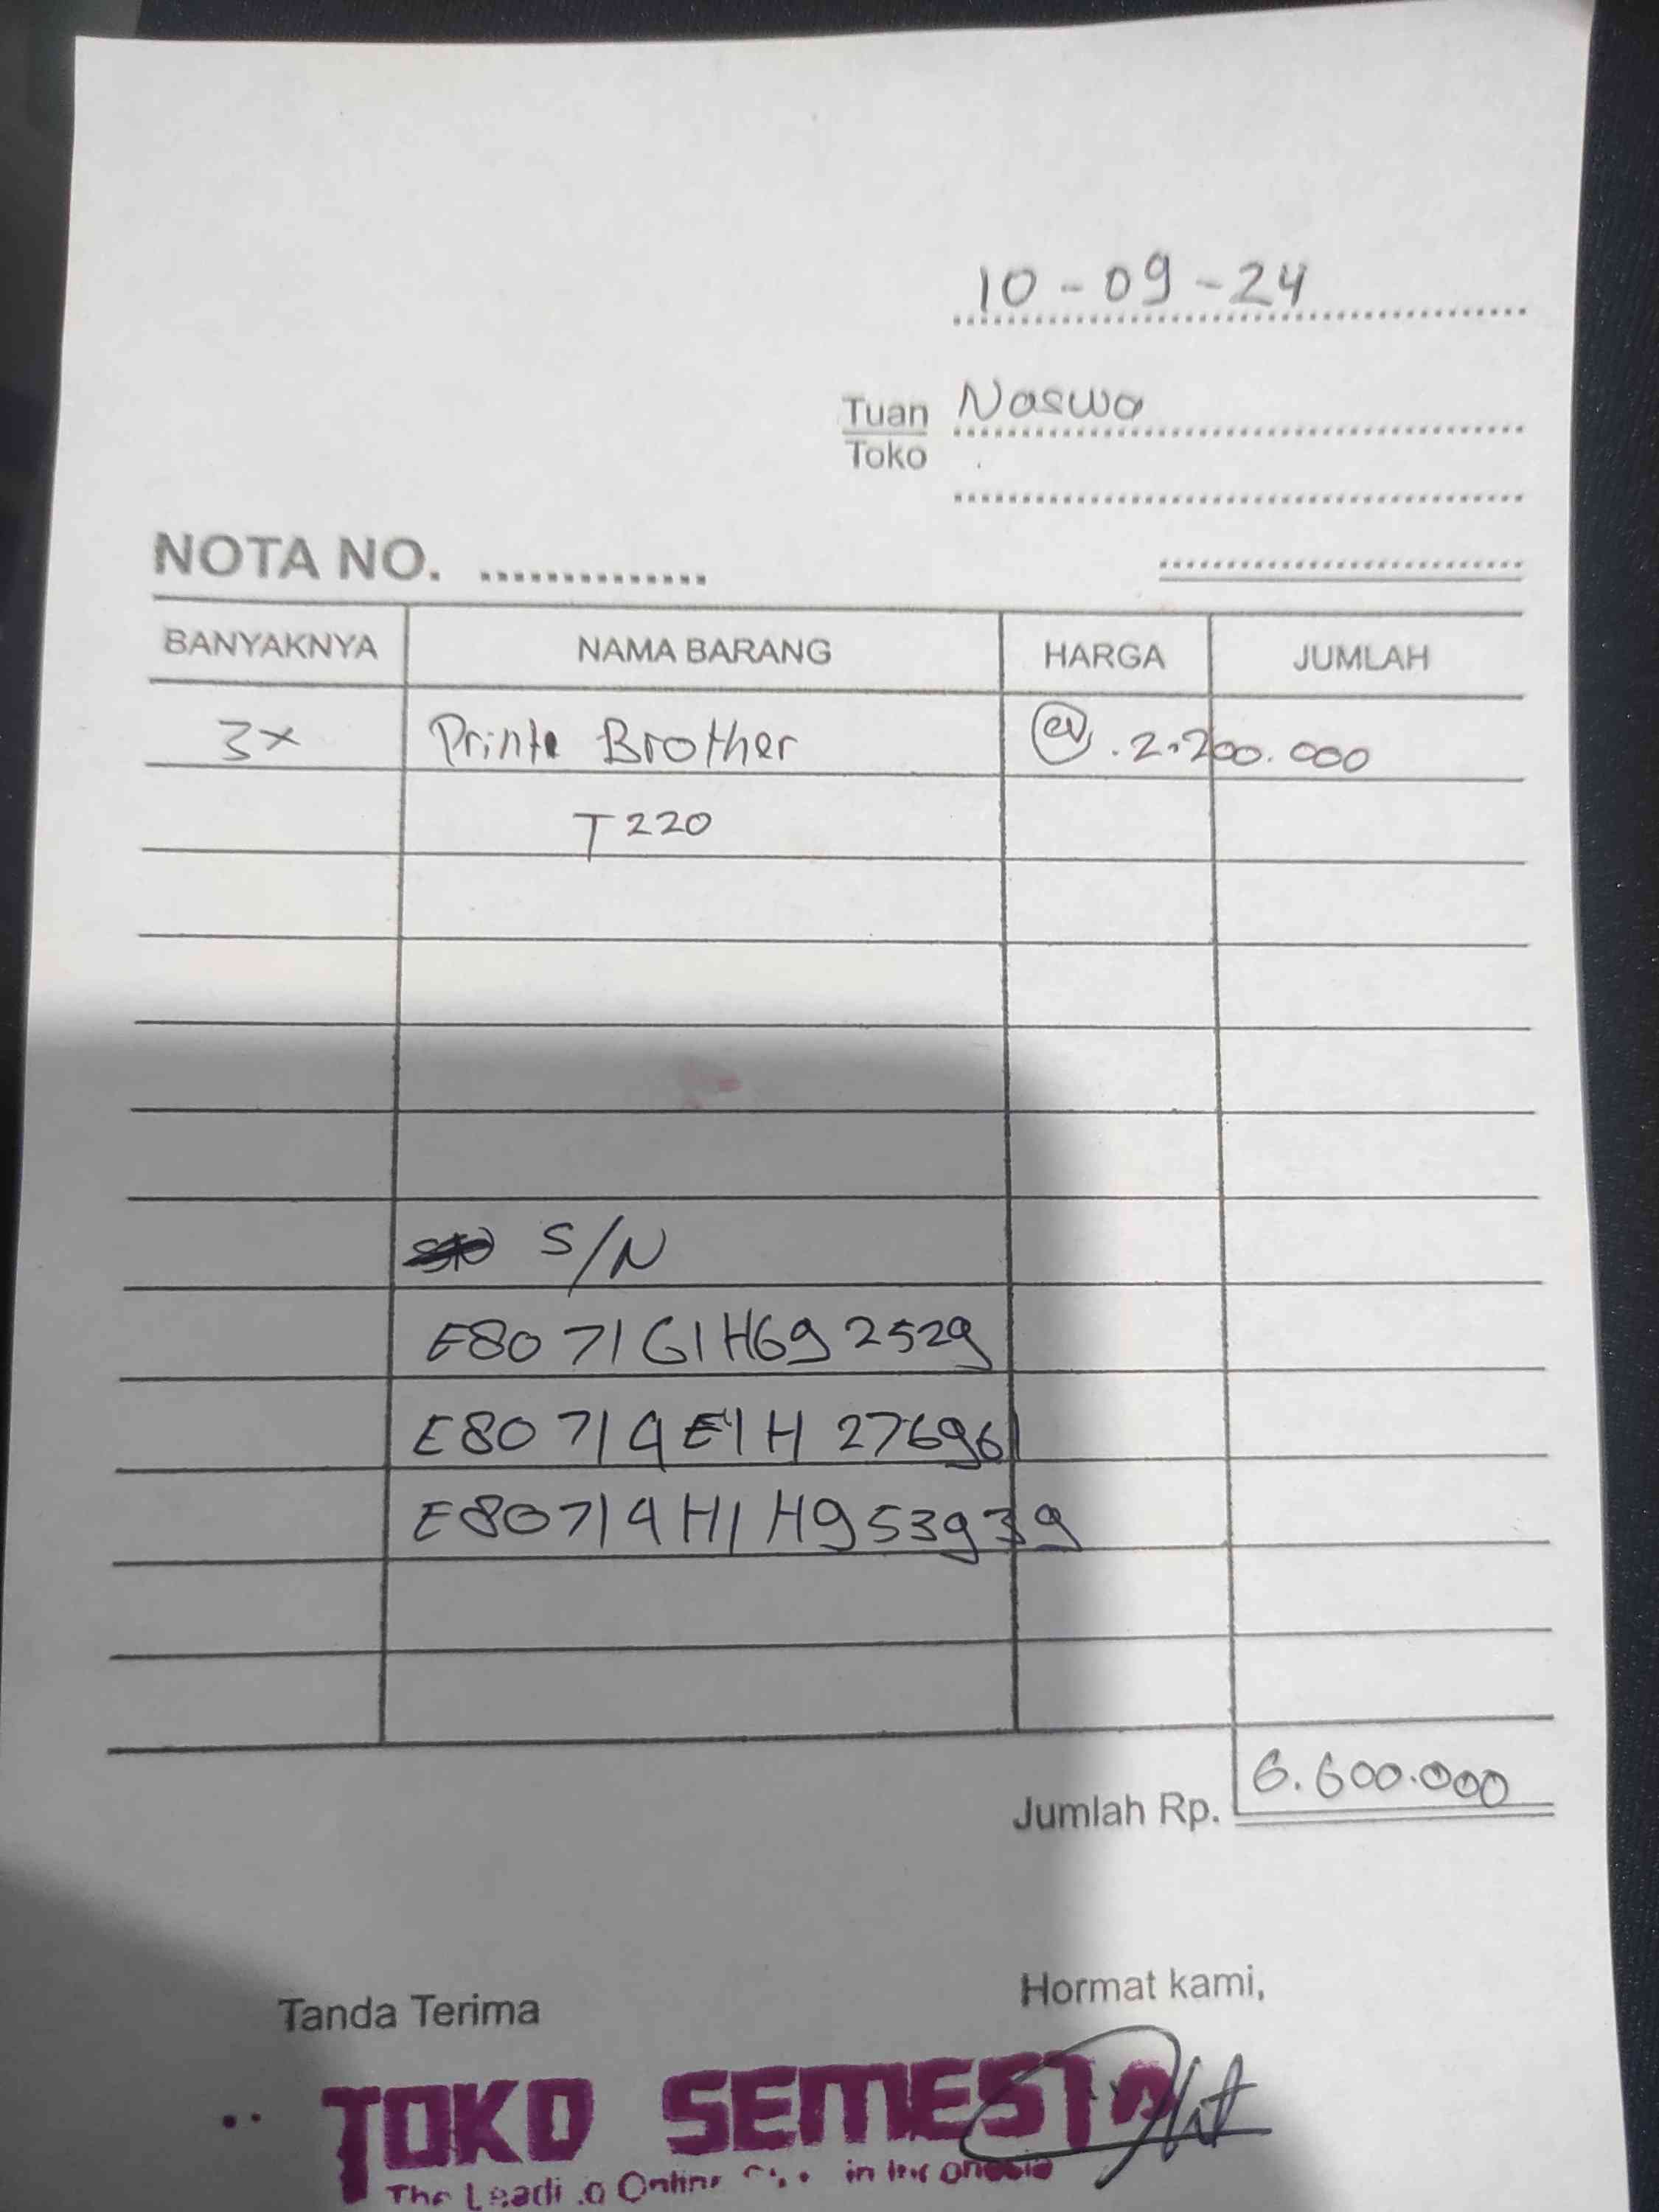 10-09-24
Tuan Naswa
Toko
NOTA NO. ..............
BANYAKNYA NAMA BARANG HARGA JUMLAH
3x Printe Brother @.2.200.000
T220
S/N
E807161H692529
E80714E1H276961
E80714H1H953939
Jumlah Rp. 6.600.000
Tanda Terima Hormat kami,
TOKO SEMESTA
The Online in